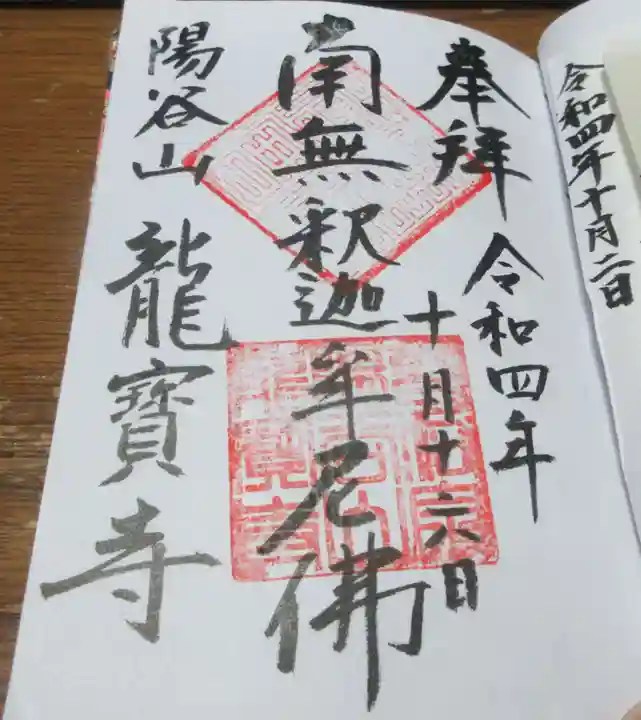 令和四年十月二日
奉拝
令和四年
十月十六日
南無釈迦牟尼佛
陽谷山
龍寳寺